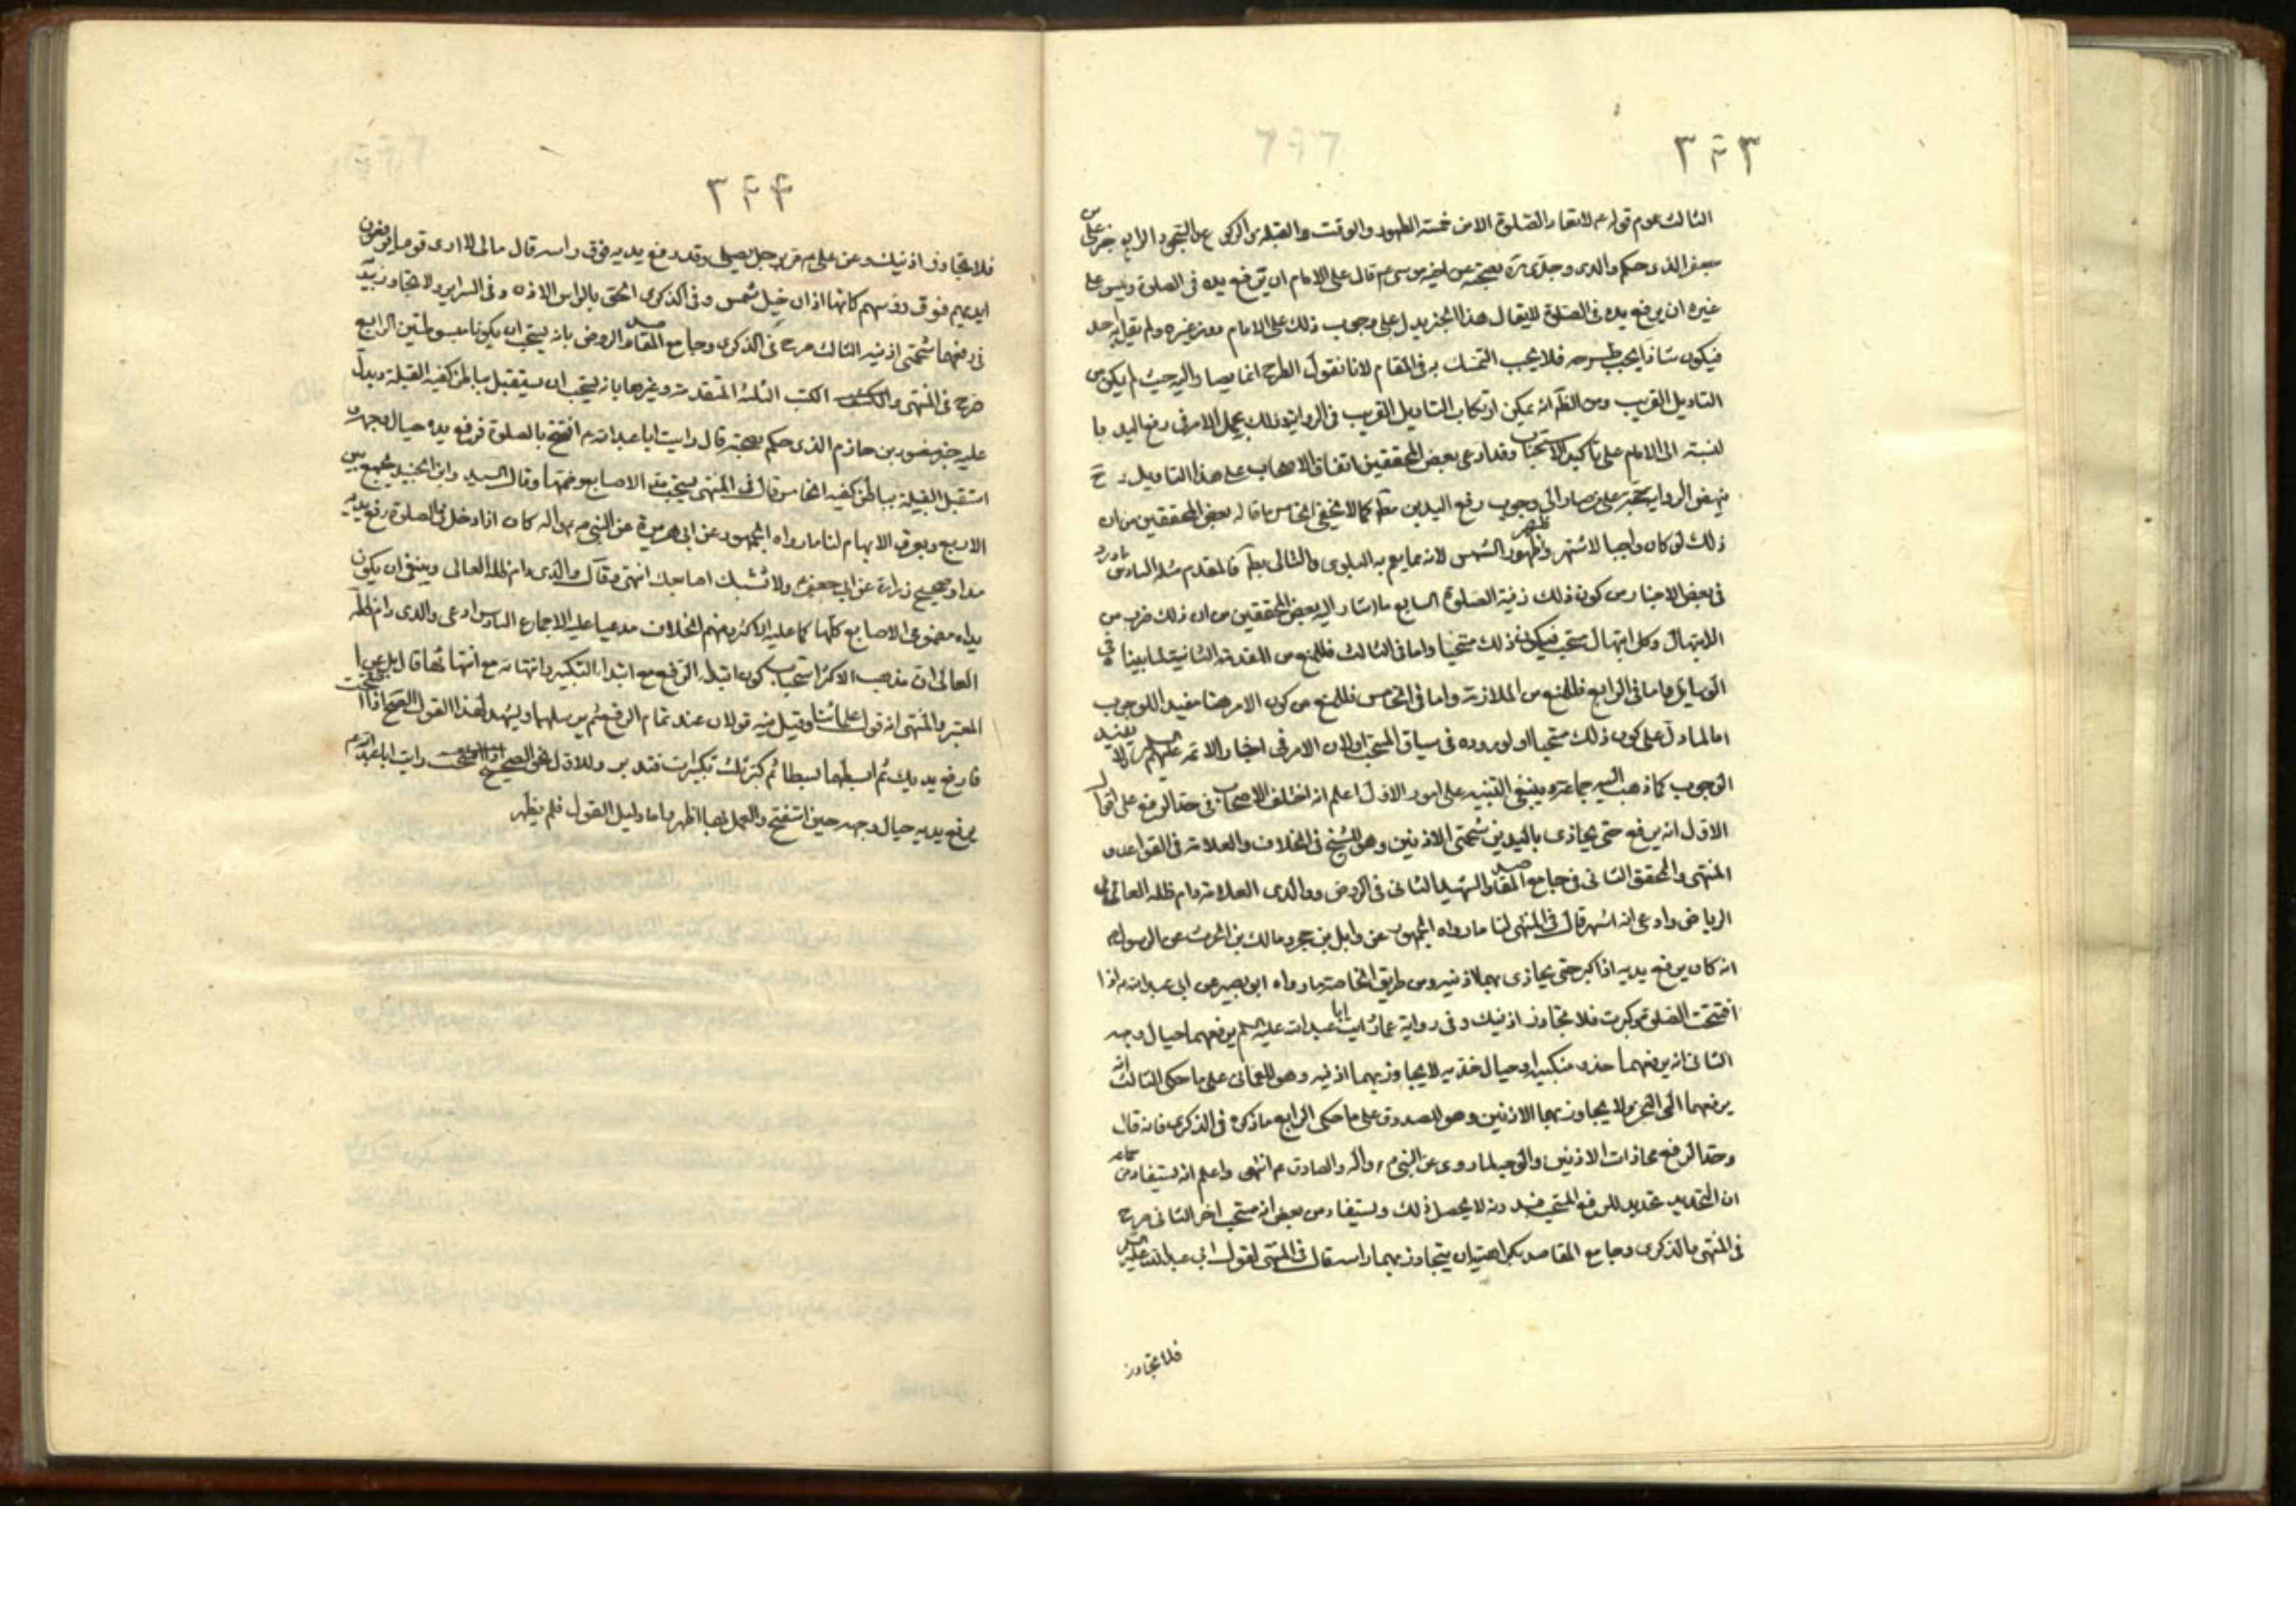 ٣٢٣
الثالث عموم قوله م لا تعاد الصلوة الا من خمسة الطهور والوقت والقبلة والركوع والسجود الرابع خبر على بن
جعفر الذى حكم والدى وجدى ره بصحته عن اخيه موسى م قال على الامام ان يرفع يده فى الصلوة وليس على
غيره ان يرفع يده فى الصلوة لا يقال هذا الخبر يدل على وجوب ذلك على الامام دون غيره ولم يقل به احد
فيكون شاذا يجب طرحه فلا يجب التمسك به فى المقام لانا نقول الطرح انما يصار اليه حيث لم يكن من
التاويل القريب ومن الظم انه يمكن ارتكاب التاويل القريب فى الرواية وذلك بحمل الامر فى رفع اليد با
لنسبة الى الامام على تاكيد الاستحباب وقد ادعى بعض المحققين اتفاق الاصحاب على هذا التاويل و ح
ينهض الرواية حجة على من صار الى وجوب رفع اليدين مطم كما لا يخفى الخامس ما قاله بعض المحققين من ان
ذلك لو كان واجبا لاشتهر وظهر ظهور الشمس لانه مما يعم به البلوى والتالى بطم فالمقدم مثله السادس ما ورد
فى بعض الاخبار من كون ذلك زينة الصلوة السابع ما اشار اليه بعض المحققين من ان ذلك ضرب من
الابتهال وكل ابتهال مستحب فيكون ذلك مستحبا واما فى الثالث فللمنع من المقدمة الثانية لما بينا فى
الوسايل واما فى الرابع فللمنع من الملازمة واما فى الخامس فللمنع من كون الامر هنا مفيد اللوجوب
اما لما دل على كون ذلك مستحبا او لوروده فى سياق المستحب او لان الامر فى اخبار الائمة عليهم السلم لا يفيد
الوجوب كما ذهب اليه جماعة وينبغى التنبيه على امور الاول اعلم انه اختلف الاصحاب فى حد الرفع على اقوال
الاول انه يرفع حتى يحاذى باليدين شحمتى الاذنين وهو للشيخ فى الخلاف والعلامة فى القواعد و
المنتهى والمحقق الثانى فى جامع المقاصد والشهيد الثانى فى الروض ووالدى العلامة دام ظله العالى فى
الرياض وادعى انه اشهر قال فى المنتهى لنا ما رواه الجمهور عن وايل بن حجر ومالك بن الحرث عن الرسول م
انه كان يرفع يديه اذا كبر حتى يحاذى بهما اذنيه ومن طريق الخاصة ما رواه ابو بصير عن ابى عبد الله م اذا
افتتحت الصلوة وكبرت فلا تتجاوز اذنيك وفى رواية عمار رايت ابا عبد الله عليه السلم يرفعهما حيال وجهه
الثانى انه يرفعهما حذو منكبيه او حيال خديه لا يجاوز بهما اذنيه وهو للعمانى على ما حكى الثالث انه
يرفعهما الى النحر ولا يجاوز بهما الاذنين وهو للصدوق على ما حكى الرابع ما ذكره فى الذكرى فانه قال
وحد الرفع محاذات الاذنين والوجه لما روى عن النبى م واله والصادق م انتهى واعلم انه يستفاد من جماعة
ان التحديد تحديد للرفع المستحب فبدونه لا يحصل ذلك ويستفاد من بعض انه مستحب اخر الثانى صرح
فى المنتهى والذكرى وجامع المقاصد بكراهية ان يتجاوز بهما راسه قال فى المنتهى لقول ابى عبد الله عليه السلم
فلا تتجاوز
٣٢٤
فلا تتجاوز اذنيك وعن على م مر برجل يصلى وقد رفع يديه فوق راسه قال مالى لا ارى قوما يرفعون
ايديهم فوق رؤسهم كانها اذان خيل شمس وفى الذكرى الحق بالراس الاذن وفى السراير ولا يجاوز بيديه
فى رفعهما شحمتى اذنيه الثالث صرح فى الذكرى وجامع المقاصد والروض بانه يستحب ان يكونا مبسوطتين الرابع
صرح فى المنتهى والكتب الثلثة المتقدمة وغيرها بانه يستحب ان يستقبل بباطن كفيه القبلة ويدل
عليه خبر منصور بن حازم الذى حكم بصحته قال رايت ابا عبد الله م افتتح بالصلوة فرفع يديه حيال وجهه و
استقبل القبلة بباطن كفيه الخامس قال فى المنتهى يستحب مد الاصابع وضمها وقال السيد وابن الجنيد يجمع بين
الاربع ويفرق الابهام لنا ما رواه الجمهور عن ابى هريرة عن النبى م واله كان اذا دخل فى الصلوة رفع يديه
مدا وصحيح زرارة عن ابى جعفر م ولا تشبك اصابعك انتهى وقال والدى دام ظله العالى وينبغى ان يكون
يداه مضمومى الاصابع كلها كما عليه الاكثر ومنهم الخلاف مدعيا عليه الاجماع السادس ادعى والدى دام ظله
العالى ان مذهب الاكثر استحباب كون ابتداء الرفع مع ابتداء التكبير وانتهائه مع انتهائها قال بل عن
المعتبر والمنتهى انه قول علمائنا وقيل فيه قولان عند تمام الرفع ثم يرسلهما ويشهد لهذا القول الصحيح اذا افتتحت
فارفع يديك ثم ابسطهما بسطا ثم كبر ثلث تكبيرات فتدبر وللاول الصحيح رايت ابا عبد الله م
يرفع يديه حيال وجهه حين استفتح والعمل بهما اظهر واما دليل القول فلم يظهر